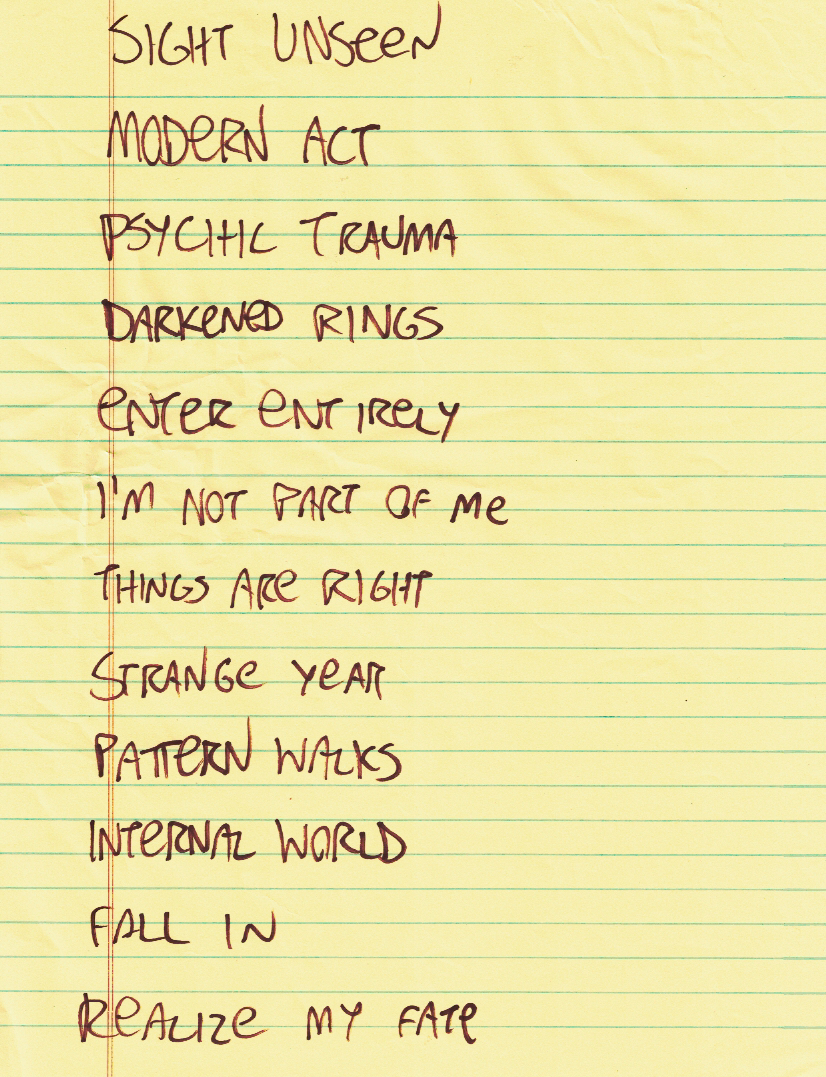 SIGHT UNSEEN
MODERN ACT
PSYCHIC TRAUMA
DARKENED RINGS
ENTER ENTIRELY
I'M NOT PART OF ME
THINGS ARE RIGHT
STRANGE YEAR
PATTERN WALKS
INTERNAL WORLD
FALL IN
REALIZE MY FATE